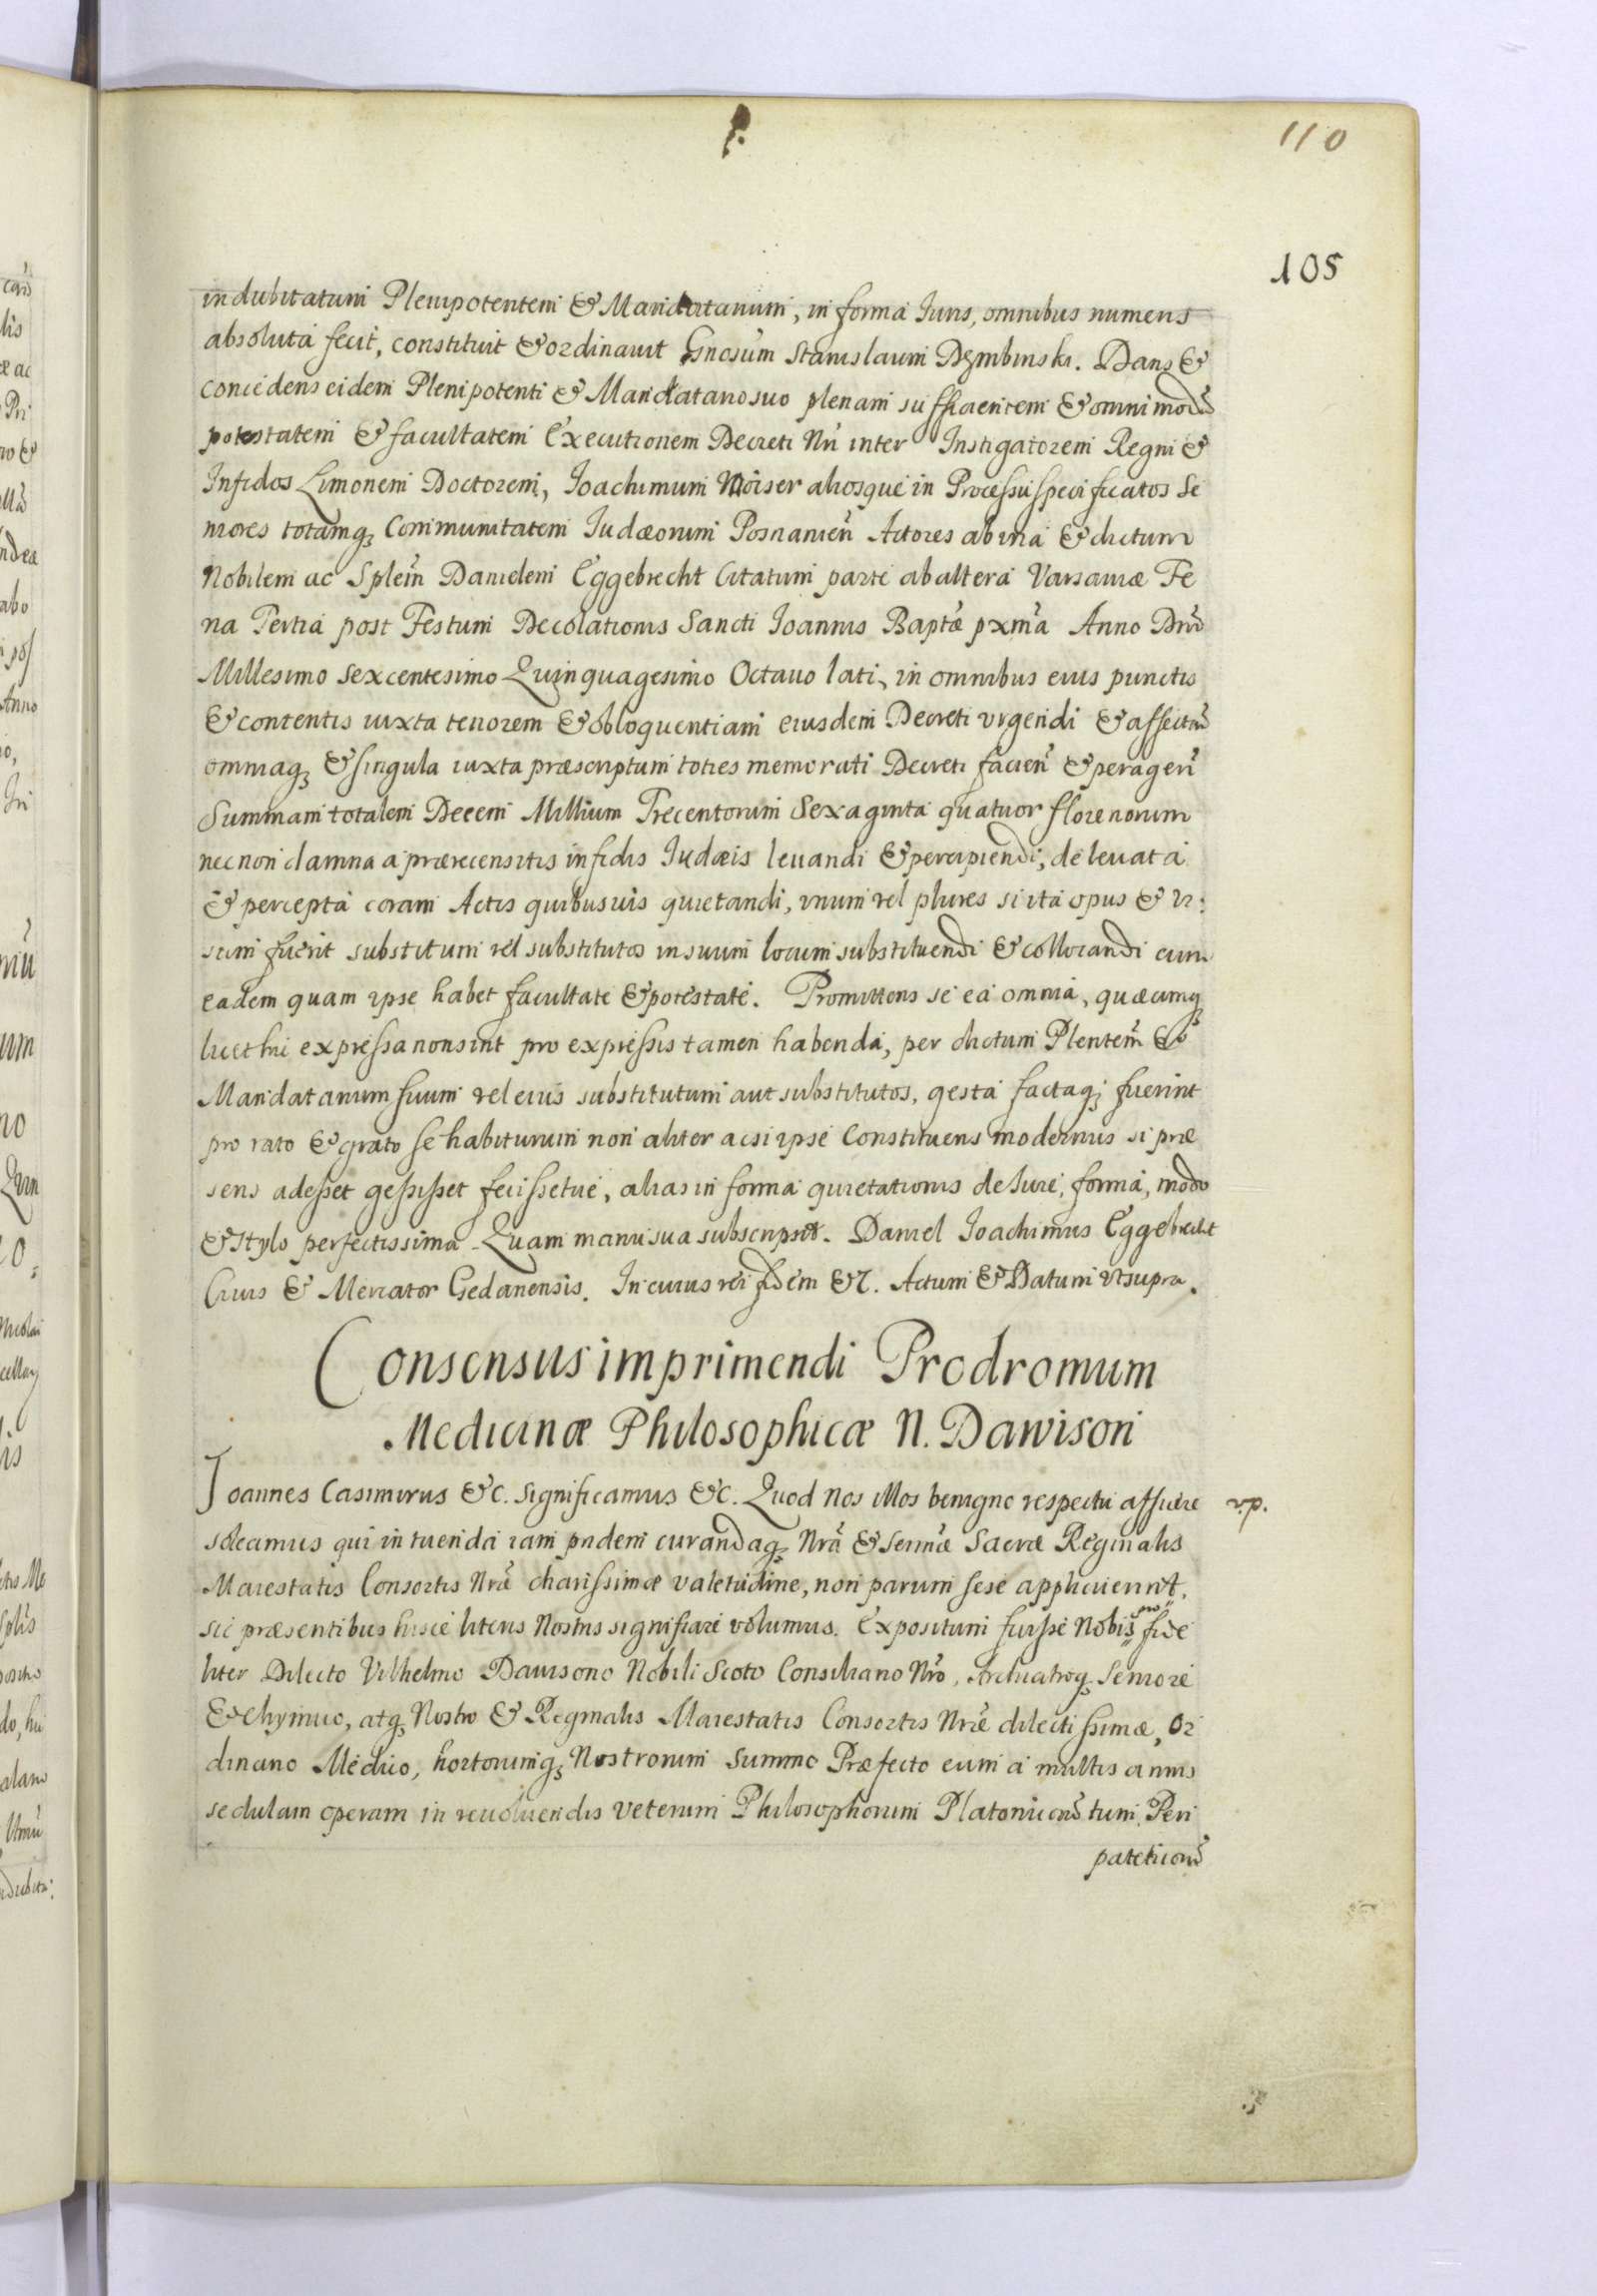 110
105
indubitatum Plenipotentem & Mandatarium, in forma Iuris, omnibus numeris
absoluta fecit, constituit & ordinauit Gnosum Stanislaum Dembinski. Dans &
concedens eidem Plenipotenti & Mandatario suo plenam sufficientem & omnimodã
potestatem & facultatem Executionem Decreti Nri inter Instigatorem Regni &
Infidos Limonem Doctorem, Ioachimum Moiser aliosque in Processu specificatos Se
niores totamq; Communitatem Iudæorum Posnanien̄ Actores ab una & dictum
Nobilem ac Splen̄ Danielem Eggebrecht Citatum parte ab altera Varsauiæ Fe
ria Tertia post Festum Decolationis Sancti Ioannis Baptæ pxma Anno Dnī
Millesimo Sexcentesimo Quinquagesimo Octauo lati, in omnibus eius punctis
& contentis iuxta tenorem & obloquentiam eiusdem Decreti vrgendi &
omniaq; & singula iuxta præscriptum toties memorati Decreti facien̄ & peragen̄
Summam totalem Decem Millium Trecentorum Sexaginta quatuor florenorum
nec non damna a prærecensitis infidis Iudæis leuandi & percipiendi, de leuata
& percepta coram Actis quibusuis quietandi, vnum vel plures si ita opus & vi:
sum fuerit substitutum vel substitutos in suum locum substituendi & collocandi cum
eadem quam ipse habet facultate & potestate. Promittens se ea omnia, quæcumq;
licet hic expressa non sint pro expressis tamen habenda, per dictum Plentem̄ &
Mandatarium suum vel eius substitutum aut substitutos, gesta factaq; fuerint
pro rato & grato se habiturum non aliter ac si ipse Constituens modernus si præ
sens adesset gessisset fecissetue, alias in forma quietationis de Iure, forma, modo
& stylo perfectissima. Quam manu sua subscripsit. Daniel Ioachimus Eggebrecht
Ciuis & Mercator Gedanensis. In cuius rei fidem &c. Actum & Datum vt supra.
Consensus imprimendi Prodromum
Medicinæ Philosophicæ N. Dawison
Ioannes Casimirus &c. Significamus &c. Quod Nos illos benigno respectu afficere
v.p.
soleamus qui in tuenda iam pridem curandaq; Nrã & Sermæ Sacræ Reginalis
Maiestatis Consortis Nræ charissimæ valetudine, non parum sese applicuerint,
sic præsentibus hisce literis Nostris significare volumus. Expositum fuisse Nobis pro fide
liter Dilecto Vilhelmo Dauisono Nobili Scoto Consiliario Nrõ, Archiatroq; Seniore
& chymico, atq; Nostro & Reginalis Maiestatis Consortis Nræ dilectissimæ, Or
dinario Medico, hortorumq; Nostrorum Summo Præfecto eum a multis annis
sedulam operam in reuoluendis veterum Philosophorum Platonicorũ tum Peri
pateticorũ